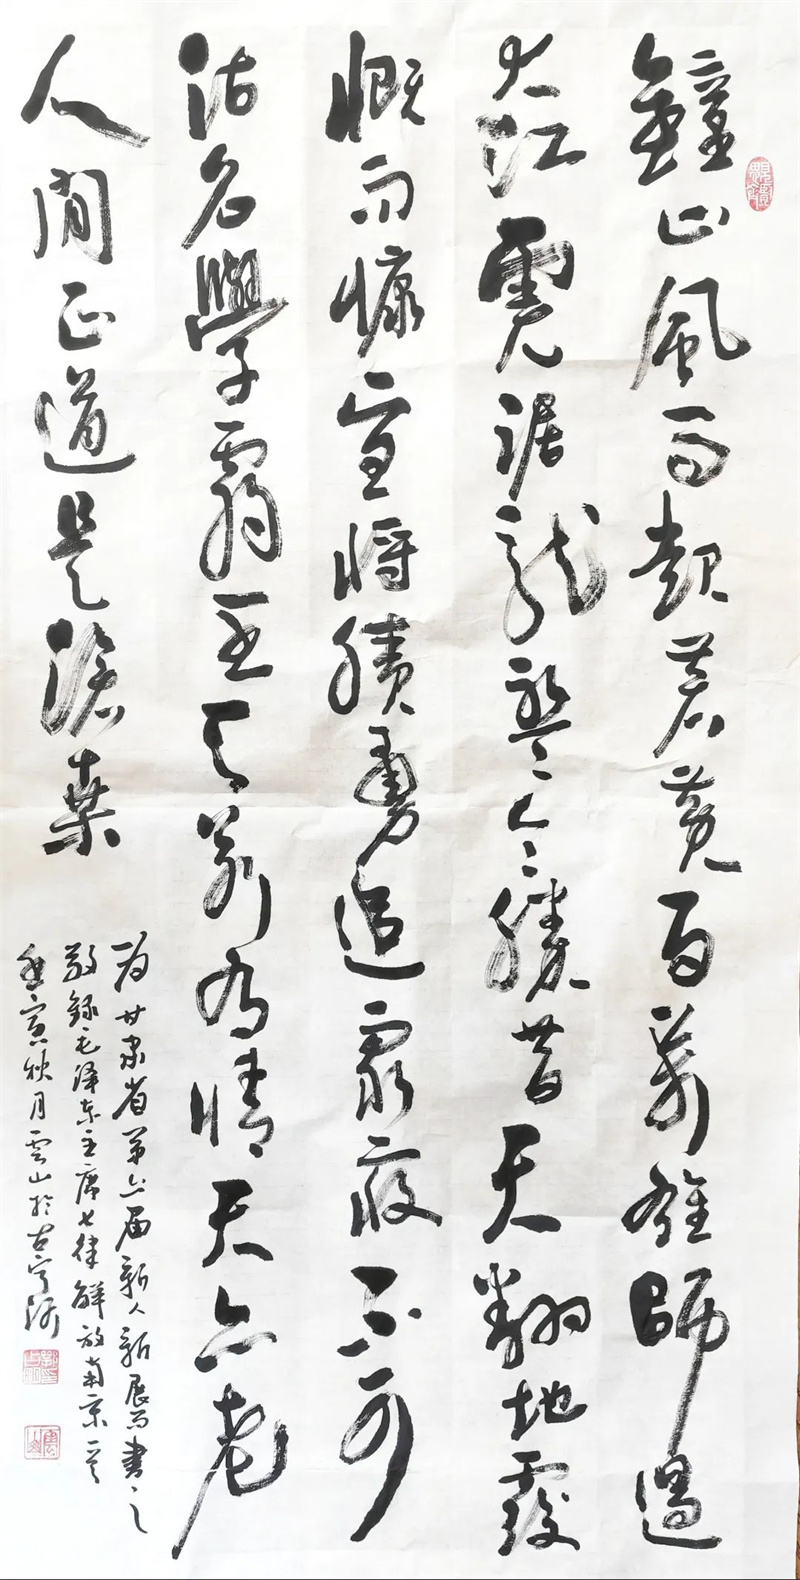 鐘山風雨起蒼黄百萬雄師過
大江虎踞龍盤今勝昔天翻地覆
慨而慷宜將賸勇追窮寇不可
沽名學霸王天若有情天亦老
人間正道是滄桑
为甘肃省第六届新人新展而書之
敬録毛澤东主席七律解放南京一首
壬寅秋月雲山於古宁河